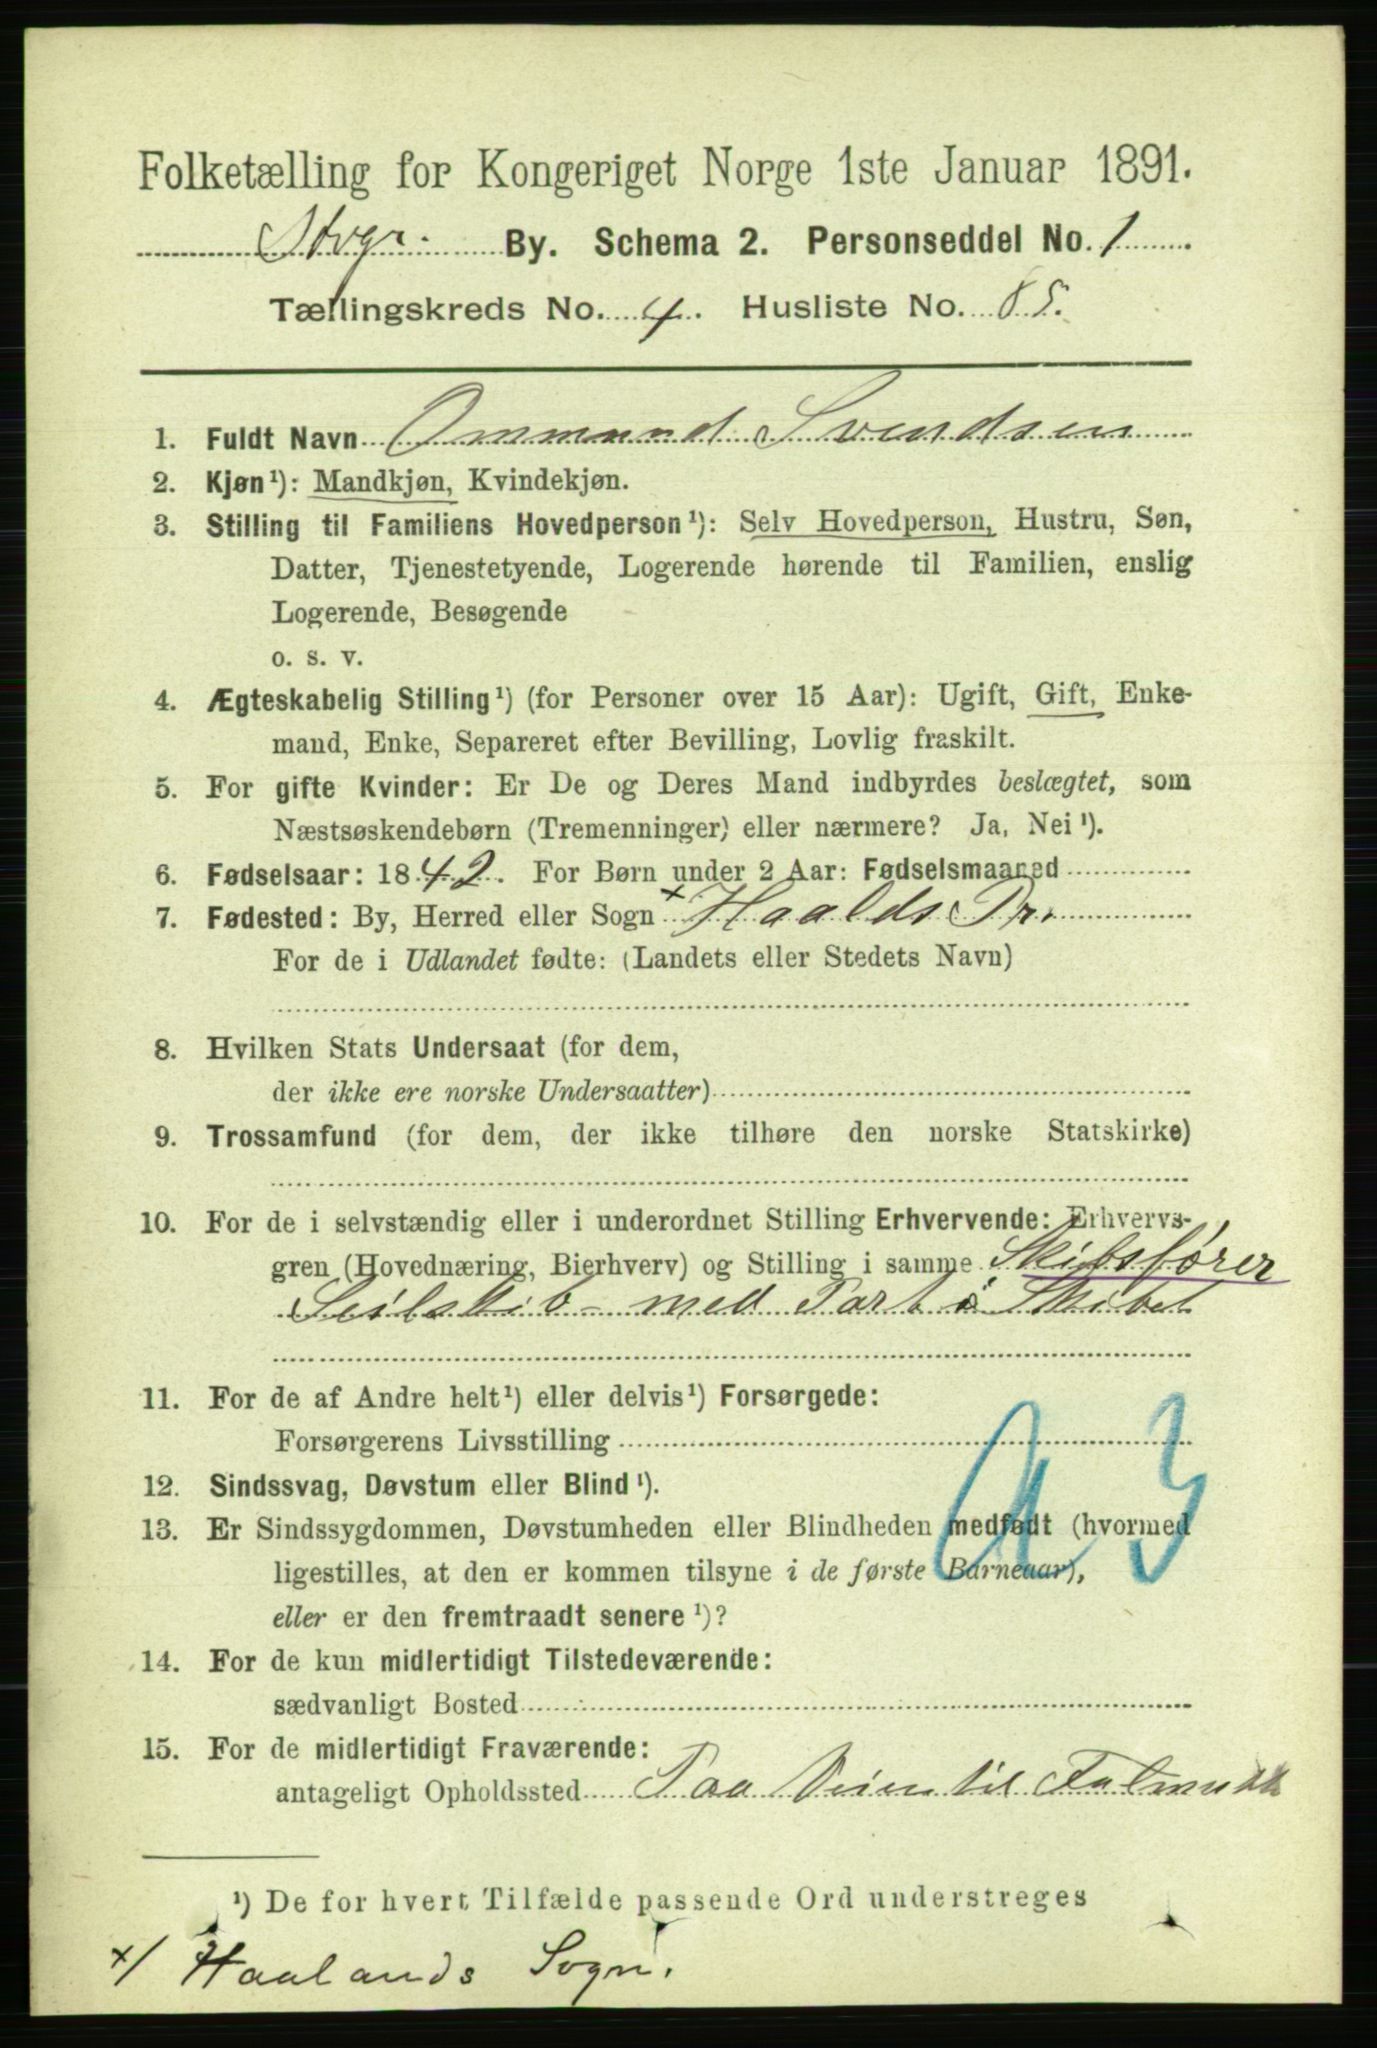 Folketælling for Kongeriget Norge 1ste Januar 1891.
Stvgr. By. Schema 2. Personseddel No. 1
Tællingskreds No. 4. Husliste No. 85.
1. Fuldt Navn Ommund Svendsen
2. Kjøn¹): Mandkjøn, Kvindekjøn.
3. Stilling til Familiens Hovedperson¹): Selv Hovedperson, Hustru, Søn,
Datter, Tjenestetyende, Logerende hørende til Familien, enslig
Logerende, Besøgende
o. s. v.
4. Ægteskabelig Stilling¹) (for Personer over 15 Aar): Ugift, Gift, Enke-
mand, Enke, Separeret efter Bevilling, Lovlig fraskilt.
5. For gifte Kvinder: Er De og Deres Mand indbyrdes beslægtet, som
Næstsøskendebørn (Tremenninger) eller nærmere? Ja, Nei¹).
6. Fødselsaar: 1842. For Børn under 2 Aar: Fødselsmaaned
7. Fødested: By, Herred eller Sogn x Haalds Pr.
For de i Udlandet fødte: (Landets eller Stedets Navn)
8. Hvilken Stats Undersaat (for dem,
der ikke ere norske Undersaatter)
9. Trossamfund (for dem, der ikke tilhøre den norske Statskirke)
10. For de i selvstændig eller i underordnet Stilling Erhvervende: Erhvervs-
gren (Hovednæring, Bierhverv) og Stilling i samme Skibsfører
Seilskib - med Part i Skibet
11. For de af Andre helt¹) eller delvis¹) Forsørgede:
Forsørgerens Livsstilling
12. Sindssvag, Døvstum eller Blind¹).
13. Er Sindssygdommen, Døvstumheden eller Blindheden medfødt (hvormed
ligestilles, at den er kommen tilsyne i de første Barneaar),
eller er den fremtraadt senere¹)?
14. For de kun midlertidigt Tilstedeværende:
sædvanligt Bosted
15. For de midlertidigt Fraværende:
antageligt Opholdssted Paa Veien til Falmuth
¹) De for hvert Tilfælde passende Ord understreges
x/ Haalands Sogn.